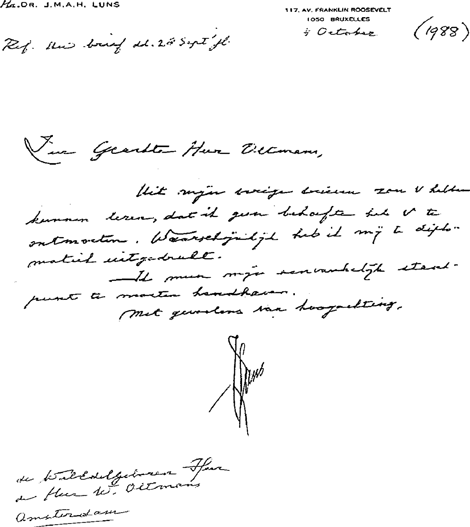 Mr. DR. J.M.A.H. LUNS
117, AV. FRANKLIN ROOSEVELT
1050 BRUXELLES
October
(1988)
Ref. Uw brief dd. 2de Sept. jl.
Zeer Geachte Heer Oltmans,
Uit mijn vorige brieven zou U hebben
kunnen lezen, dat ik geen behoefte heb U te
ontmoeten. Waarschijnlijk heb ik mij te diplo-
matiek uitgedrukt.
Ik meen mijn aanvankelijk stand-
punt te moeten handhaven.
Met gevoelens van hoogachting,
Luns
de WelEdelgeboren Heer
de Heer W. Oltmans
Amsterdam